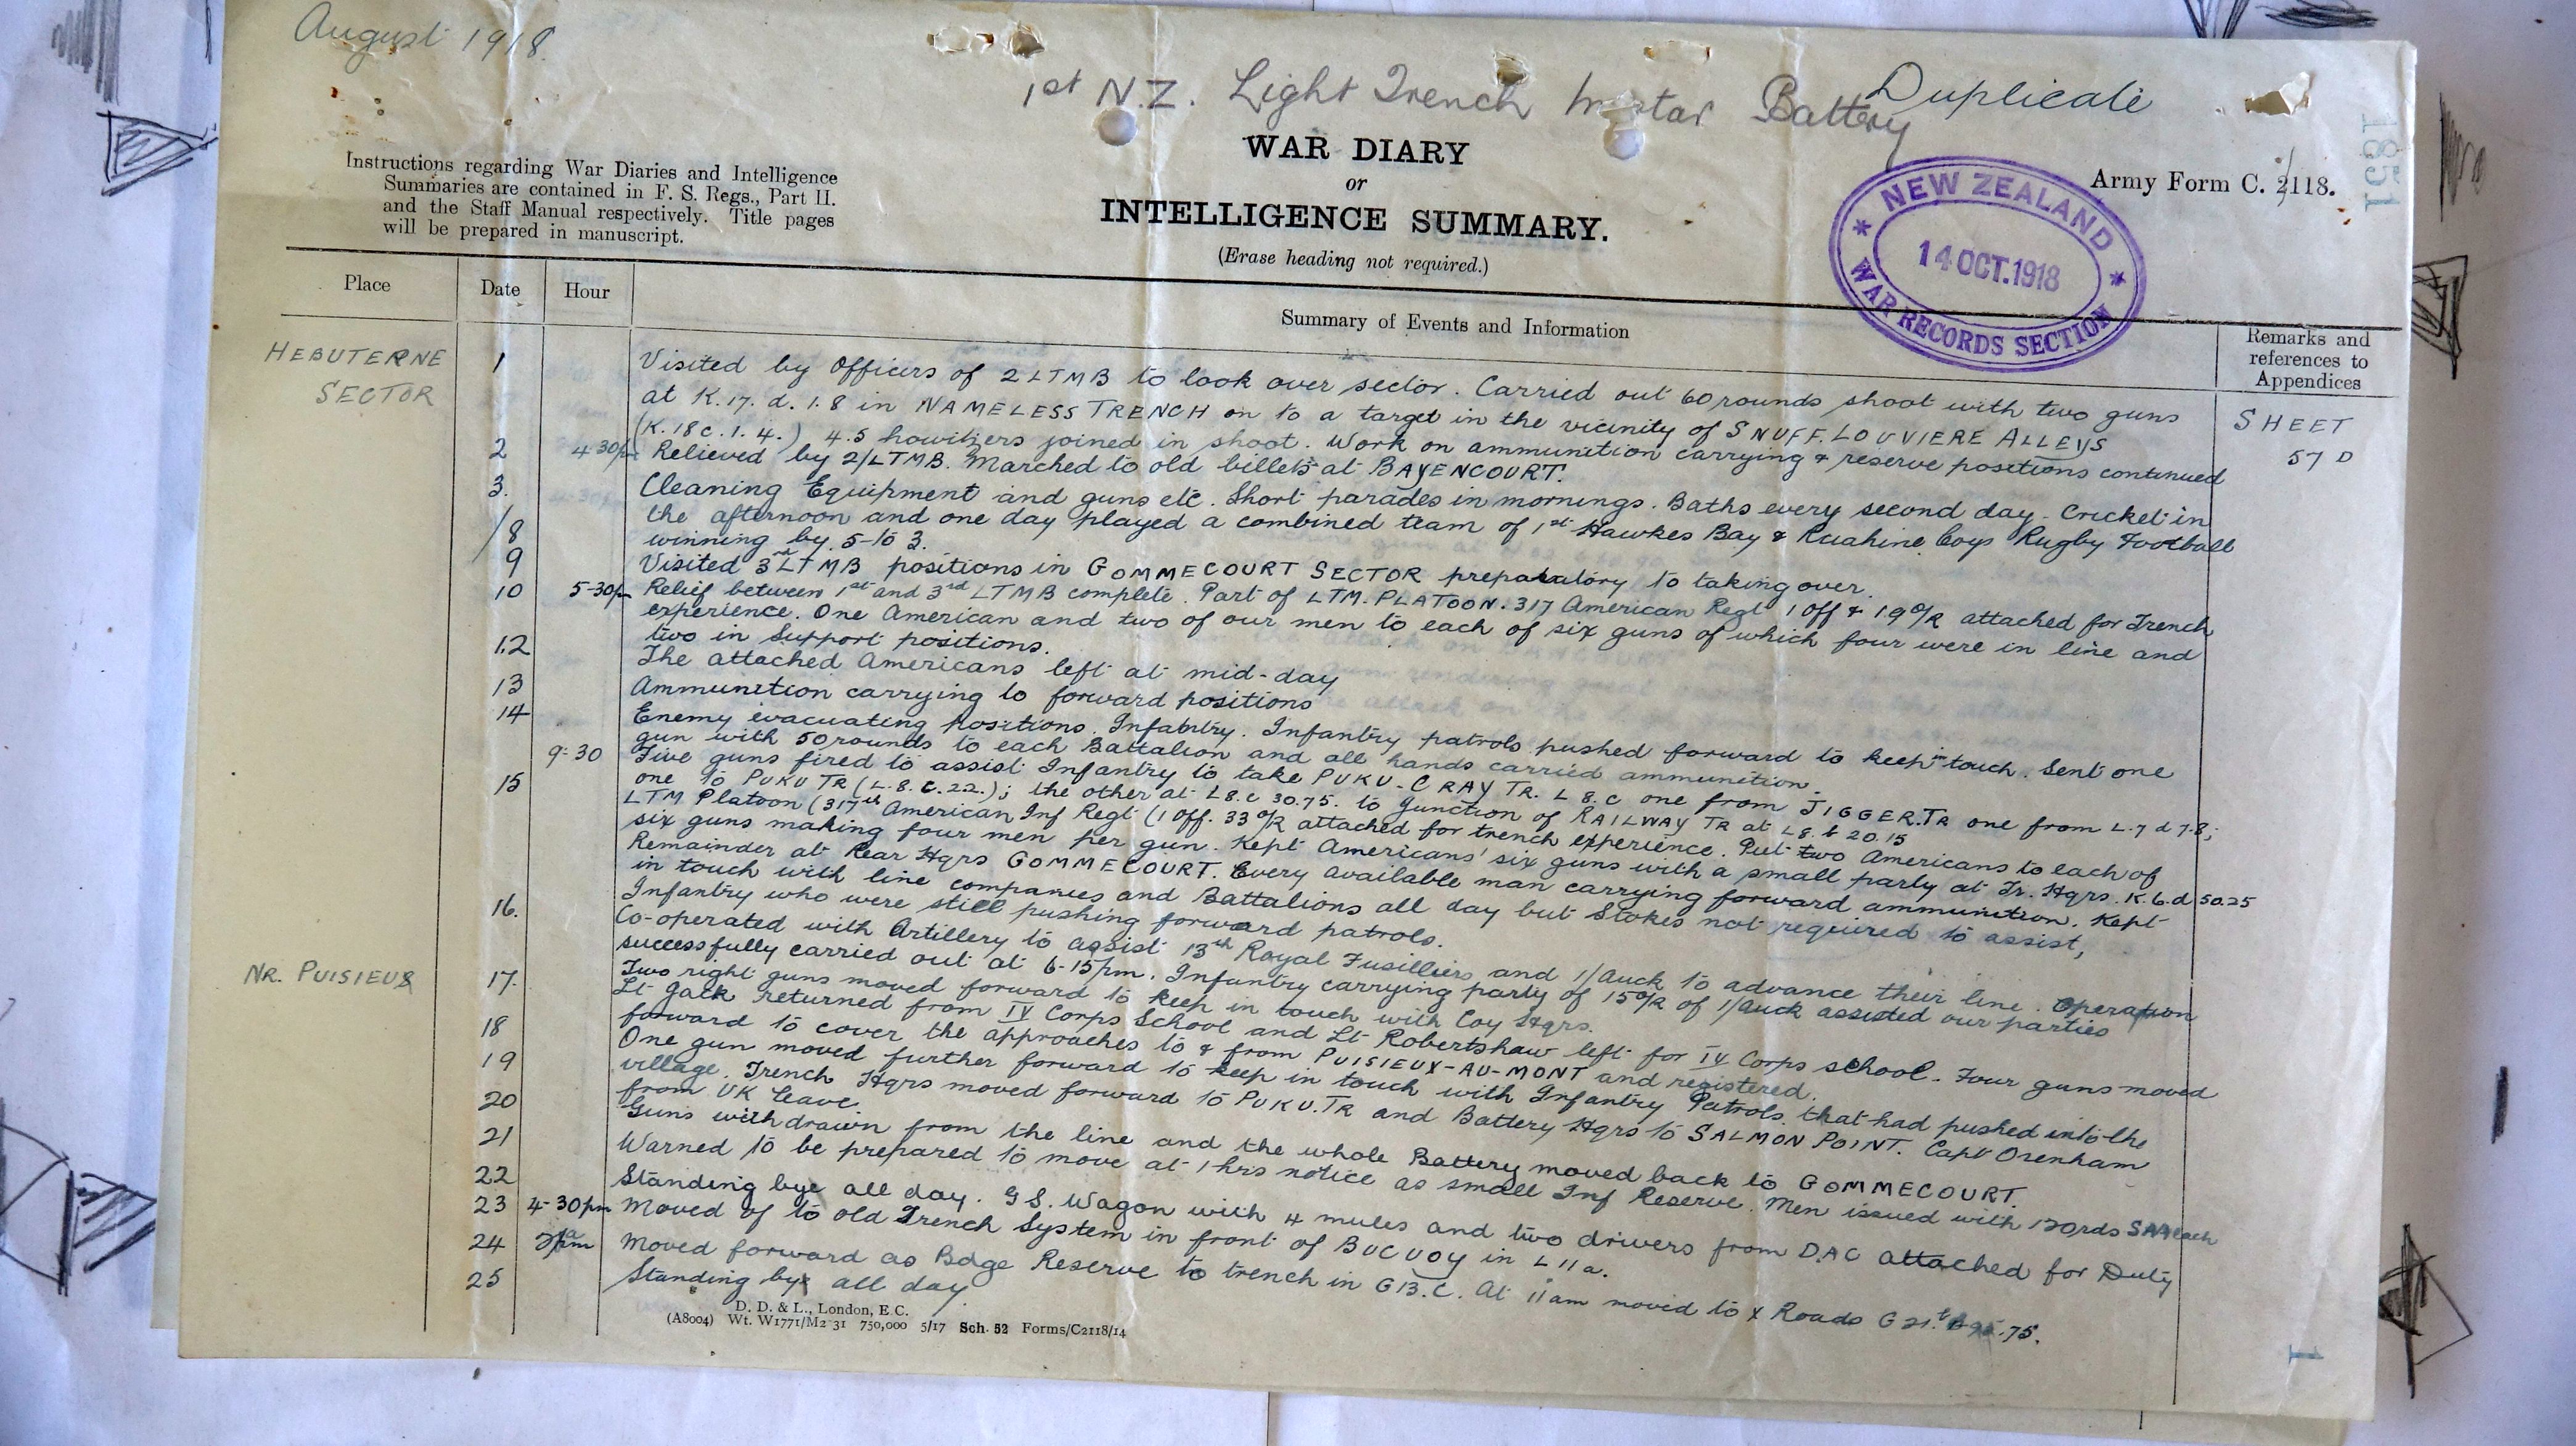 August 1918
1st N.Z. Light Trench Battery
Duplicate
1851
WAR DIARY
or
INTELLIGENCE SUMMARY.
(Erase heading not required.)
Instructions regarding War Diaries and Intelligence
Summaries are contained in F. S. Regs., Part II.
and the Staff Manual respectively. Title pages
will be prepared in manuscript.
Army Form C. 2118.
NEW ZEALAND
14 OCT. 1918
WAR RECORDS SECTION
Place Date Hour Summary of Events and Information Remarks and
references to
Appendices
HEBUTERNE
SECTOR
SHEET
57 D
1 Visited by Officers of 2 LTMB to look over sector. Carried out 60 rounds shoot with two guns
at K.17.d.1.8 in NAMELESS TRENCH on to a target in the vicinity of SNUFF. LOUVIERE ALLEYS
(K.18c.1.4.) 4.5 howitzers joined in shoot. Work on ammunition carrying & reserve positions continued
2 4-30pm Relieved by 2/LTMB. Marched to old billets at BAYENCOURT.
3. Cleaning Equipment and guns etc. Short parades in mornings. Baths every second day. Cricket in
the afternoon and one day played a combined team of 1st Hawkes Bay & Ruahine Coys Rugby Football
/8 winning by 5-to 3.
9 Visited 3rd LTMB positions in GOMMECOURT SECTOR preparatory to taking over.
10 5-30pm Relief between 1st and 3rd LTMB complete. Part of LTM. PLATOON. 317 American Regt 1 Off & 19 O/R attached for Trench
experience. One American and two of our men to each of six guns of which four were in line and
two in Support positions.
12 The attached Americans left at mid-day
13 Ammunition carrying to forward positions
14 Enemy evacuating positions. Infantry. Infantry patrols pushed forward to keep in touch. Sent one
gun with 50 rounds to each Battalion and all hands carried ammunition.
9-30 Five guns fired to assist Infantry to take PUKU-CRAY TR. L 8.c one from JIGGER.TR one from L.7 d 7.8;
one to PUKU TR (L.8.c.22.); the other at L8.c 30.75. to Junction of RAILWAY TR at L8.b 20.15
15 LTM Platoon (317th American Inf Regt (1 Off. 33 O/R attached for trench experience. Put two Americans to each of
six guns making four men per gun. Kept Americans' six guns with a small party at Tr. Hqrs. K.6.d 50.25
Remainder at Rear Hqrs GOMMECOURT. Every available man carrying forward ammunition. Kept
in touch with line companies and Battalions all day but Stokes not required to assist,
Infantry who were still pushing forward patrols.
16. Co-operated with Artillery to assist 13th Royal Fusilliers and 1/Auck to advance their line. Operation
successfully carried out at 6-15pm. Infantry carrying party of 15 O/R of 1/Auck assisted our parties
NR. PUISIEUX
17. Two right guns moved forward to keep in touch with Coy Hqrs.
Lt returned from IV Corps School and Lt Robertshaw left for IV Corps school. Four guns moved
forward to cover the approaches to & from PUISIEUX-AU-MONT and registered.
18 One gun moved further forward to keep in touch with Infantry Patrols that had pushed into the
village. Trench Hqrs moved forward to PUKU.TR and Battery Hqrs to SALMON POINT. Capt Oxenham
19 from UK leave
20 Guns withdrawn from the line and the whole Battery moved back to GOMMECOURT.
21 Warned to be prepared to move at 1 hrs notice as small Inf Reserve. Men issued with 120rds SAA each
22 Standing bye all day. G.S. Wagon with 4 mules and two drivers from DAC attached for Duty
23 4-30pm Moved of to old Trench System in front of BUCUOY in L 11a.
24 Moved forward as Bdge Reserve to trench in G13.C. At 11am moved to X Roads G 21. .75.
25 Standing by all day.
D. D. & L., London, E.C.
(A8004) Wt. W1771/M2 31 750,000 5/17 Sch. 52 Forms/C2118/14
1